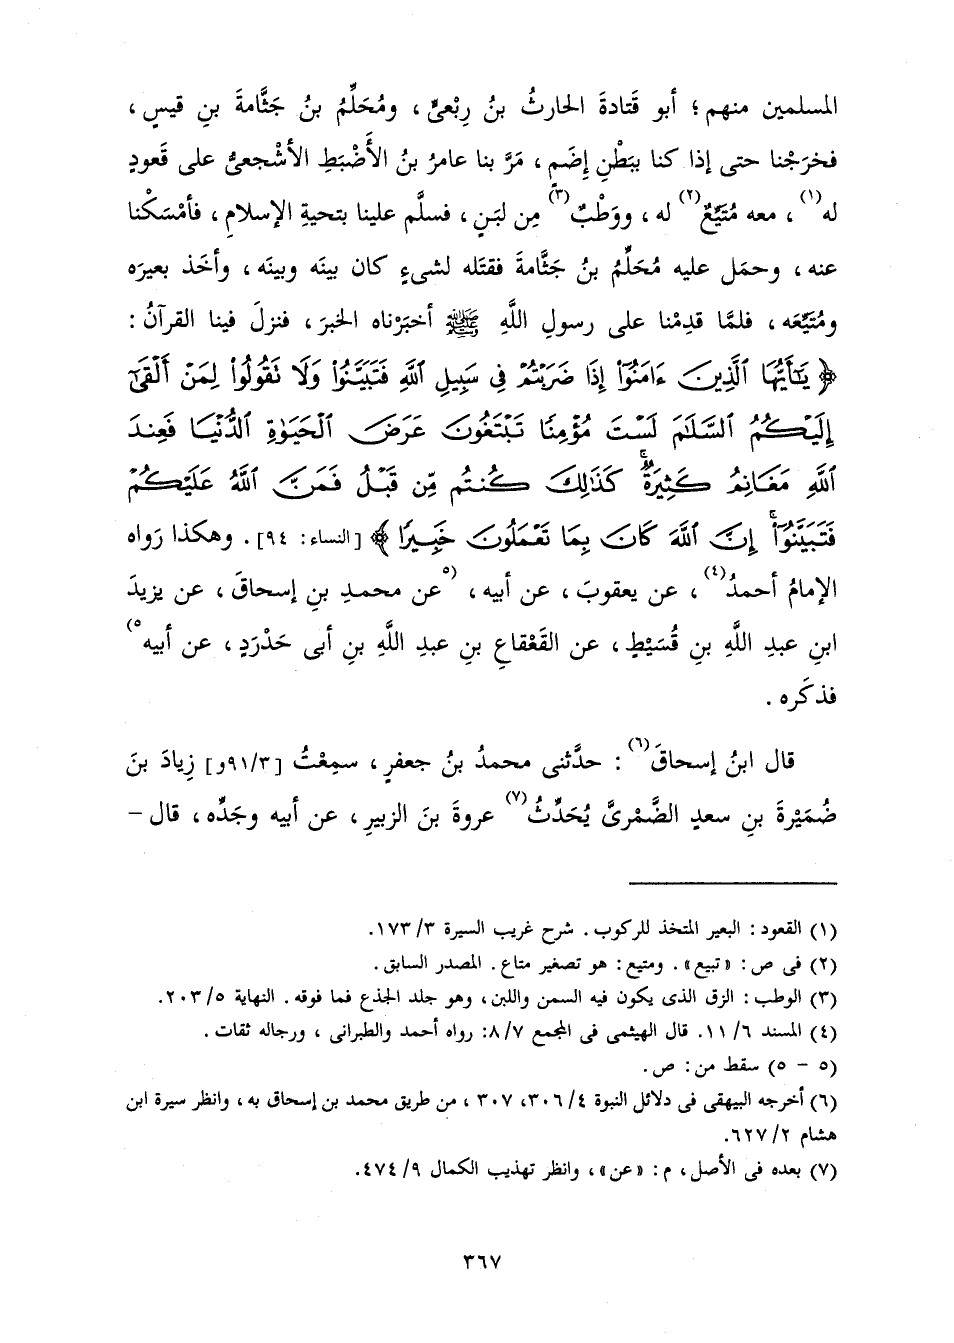 المسلمين منهم ؛ أبو قَتادةَ الحارثُ بنُ رِبْعىٍّ ، ومُحَلِّمُ بنُ جَثَّامةَ بنِ قيسٍ ،
فخرَجْنا حتى إذا كنا ببَطْنِ إضَمٍ ، مَرَّ بنا عامرُ بنُ الأَضْبَطِ الأشْجعىُّ على قَعودٍ
له(١) ، معه مُتَيِّعٌ(٢) له ، ووَطْبٌ(٣) مِن لبَنٍ ، فسلَّم علينا بتحيةِ الإسلامِ ، فأمْسَكْنا
عنه ، وحمَل عليه مُحَلِّمُ بنُ جَثَّامةَ فقتَله لشىءٍ كان بينَه وبينَه ، وأخَذ بعيرَه
ومُتَيِّعَه ، فلمَّا قدِمْنا على رسولِ اللَّهِ ﷺ أخبَرْناه الخبرَ ، فنزلَ فينا القرآنُ :
﴿ يَٰٓأَيُّهَا ٱلَّذِينَ ءَامَنُوٓا۟ إِذَا ضَرَبْتُمْ فِى سَبِيلِ ٱللَّهِ فَتَبَيَّنُوا۟ وَلَا تَقُولُوا۟ لِمَنْ أَلْقَىٰٓ
إِلَيْكُمُ ٱلسَّلَٰمَ لَسْتَ مُؤْمِنًا تَبْتَغُونَ عَرَضَ ٱلْحَيَوٰةِ ٱلدُّنْيَا فَعِندَ
ٱللَّهِ مَغَانِمُ كَثِيرَةٌ ۚ كَذَٰلِكَ كُنتُم مِّن قَبْلُ فَمَنَّ ٱللَّهُ عَلَيْكُمْ
فَتَبَيَّنُوٓا۟ ۚ إِنَّ ٱللَّهَ كَانَ بِمَا تَعْمَلُونَ خَبِيرًا ﴾ [ النساء : ٩٤ ] . وهكذا رَواه
الإمامُ أحمدُ(٤) ، عن يعقوبَ ، عن أبيه ، (٥عن محمدِ بنِ إسحاقَ ، عن يزيدَ
ابنِ عبدِ اللَّهِ بنِ قُسَيْطٍ ، عن القَعْقاعِ بنِ عبدِ اللَّهِ بنِ أبى حَدْرَدٍ ، عن أبيه٥)
فذكَره .
قال ابنُ إسحاقَ(٦) : حدَّثنى محمدُ بنُ جعفرٍ ، سمِعْتُ [ ٩١/٣و ] زِيادَ بنَ
ضُمَيْرةَ بنِ سعدٍ الضَّمْرىَّ يُحَدِّثُ(٧) عروةَ بنَ الزبيرِ ، عن أبيه وجَدِّه ، قال –
(١) القعود : البعير المتخذ للركوب . شرح غريب السيرة ١٧٣/٣.
(٢) فى ص : « تبيع » . ومتيع : هو تصغير متاع . المصدر السابق .
(٣) الوطب : الزق الذى يكون فيه السمن واللبن ، وهو جلد الجذع فما فوقه . النهاية ٢٠٣/٥.
(٤) المسند ١١/٦. قال الهيثمى فى المجمع ٨/٧: رواه أحمد والطبرانى ، ورجاله ثقات .
(٥ – ٥) سقط من : ص .
(٦) أخرجه البيهقى فى دلائل النبوة ٣٠٦/٤، ٣٠٧ ، من طريق محمد بن إسحاق به ، وانظر سيرة ابن
هشام ٦٢٧/٢.
(٧) بعده فى الأصل ، م : « عن » ، وانظر تهذيب الكمال ٤٧٤/٩.
٣٦٧